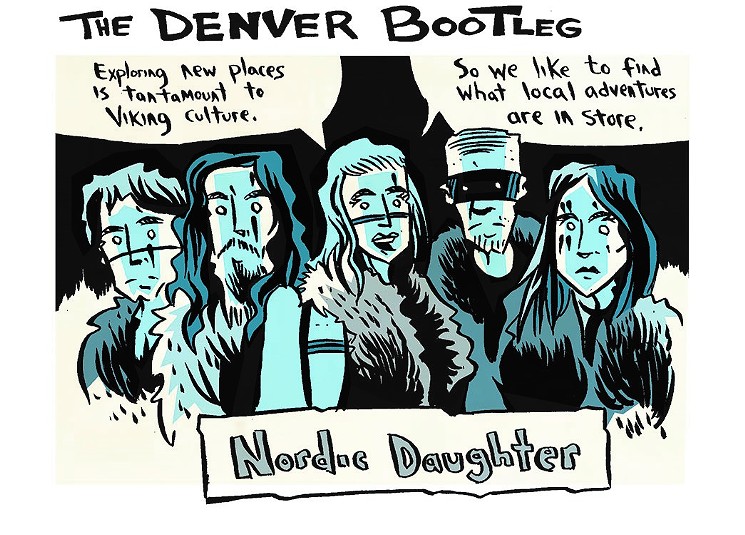 THE DENVER BOOTLEG
Exploring new places
is tantamount to
Viking culture.
So we like to find
what local adventures
are in store.
Nordic Daughter